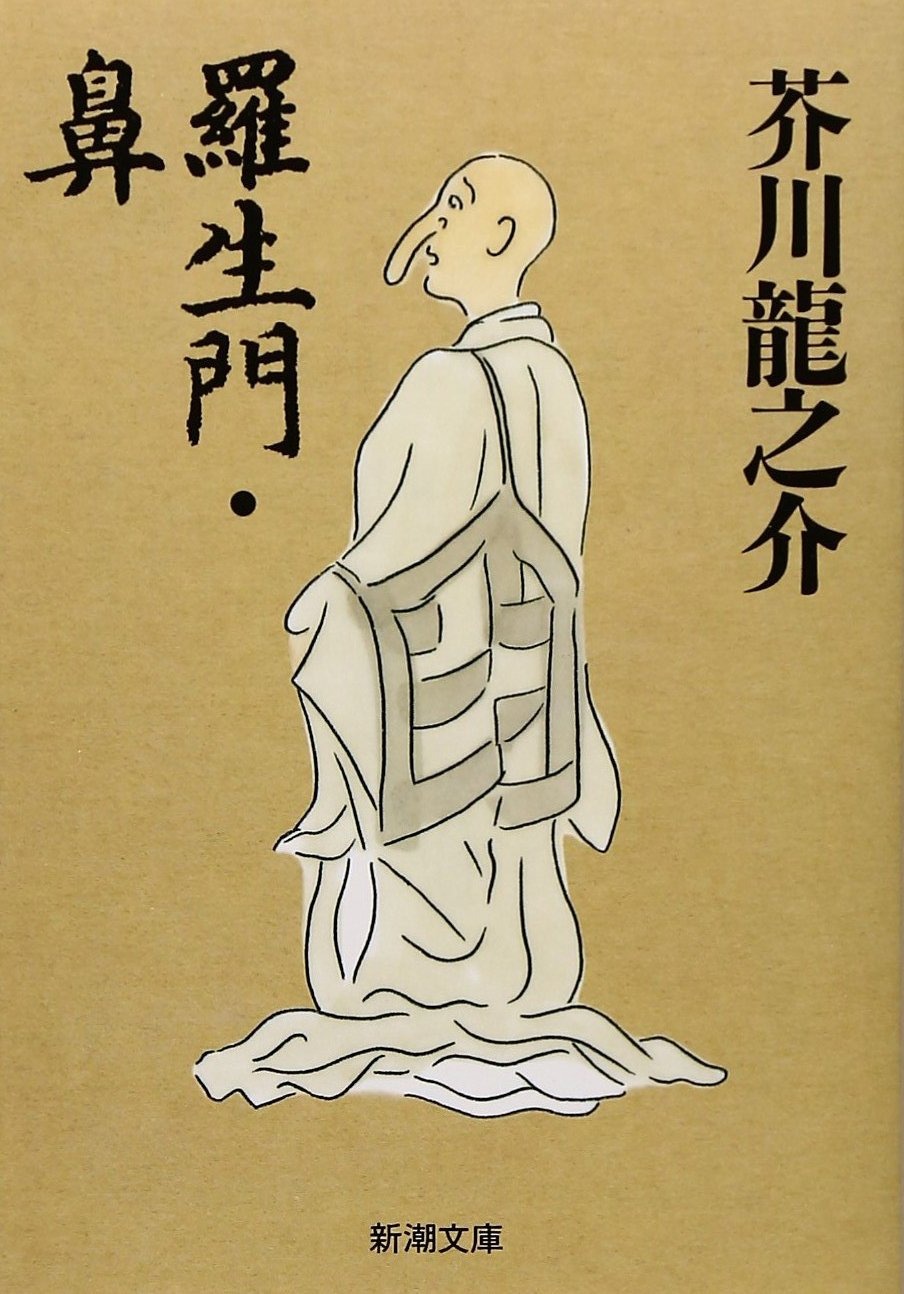 芥川龍之介
羅生門・
鼻
新潮文庫